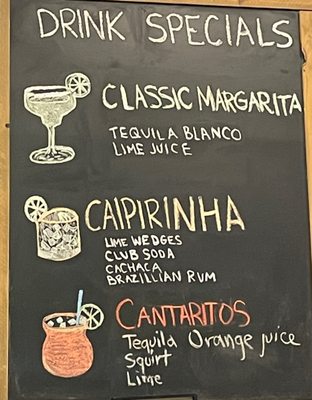 DRINK SPECIALS
CLASSIC MARGARITA
TEQUILA BLANCO
LIME JUICE
CAIPIRINHA
LIME WEDGES
CLUB SODA
CACHACA
BRAZILLIAN RUM
CANTARITOS
Tequila Orange juice
Squirt
Lime